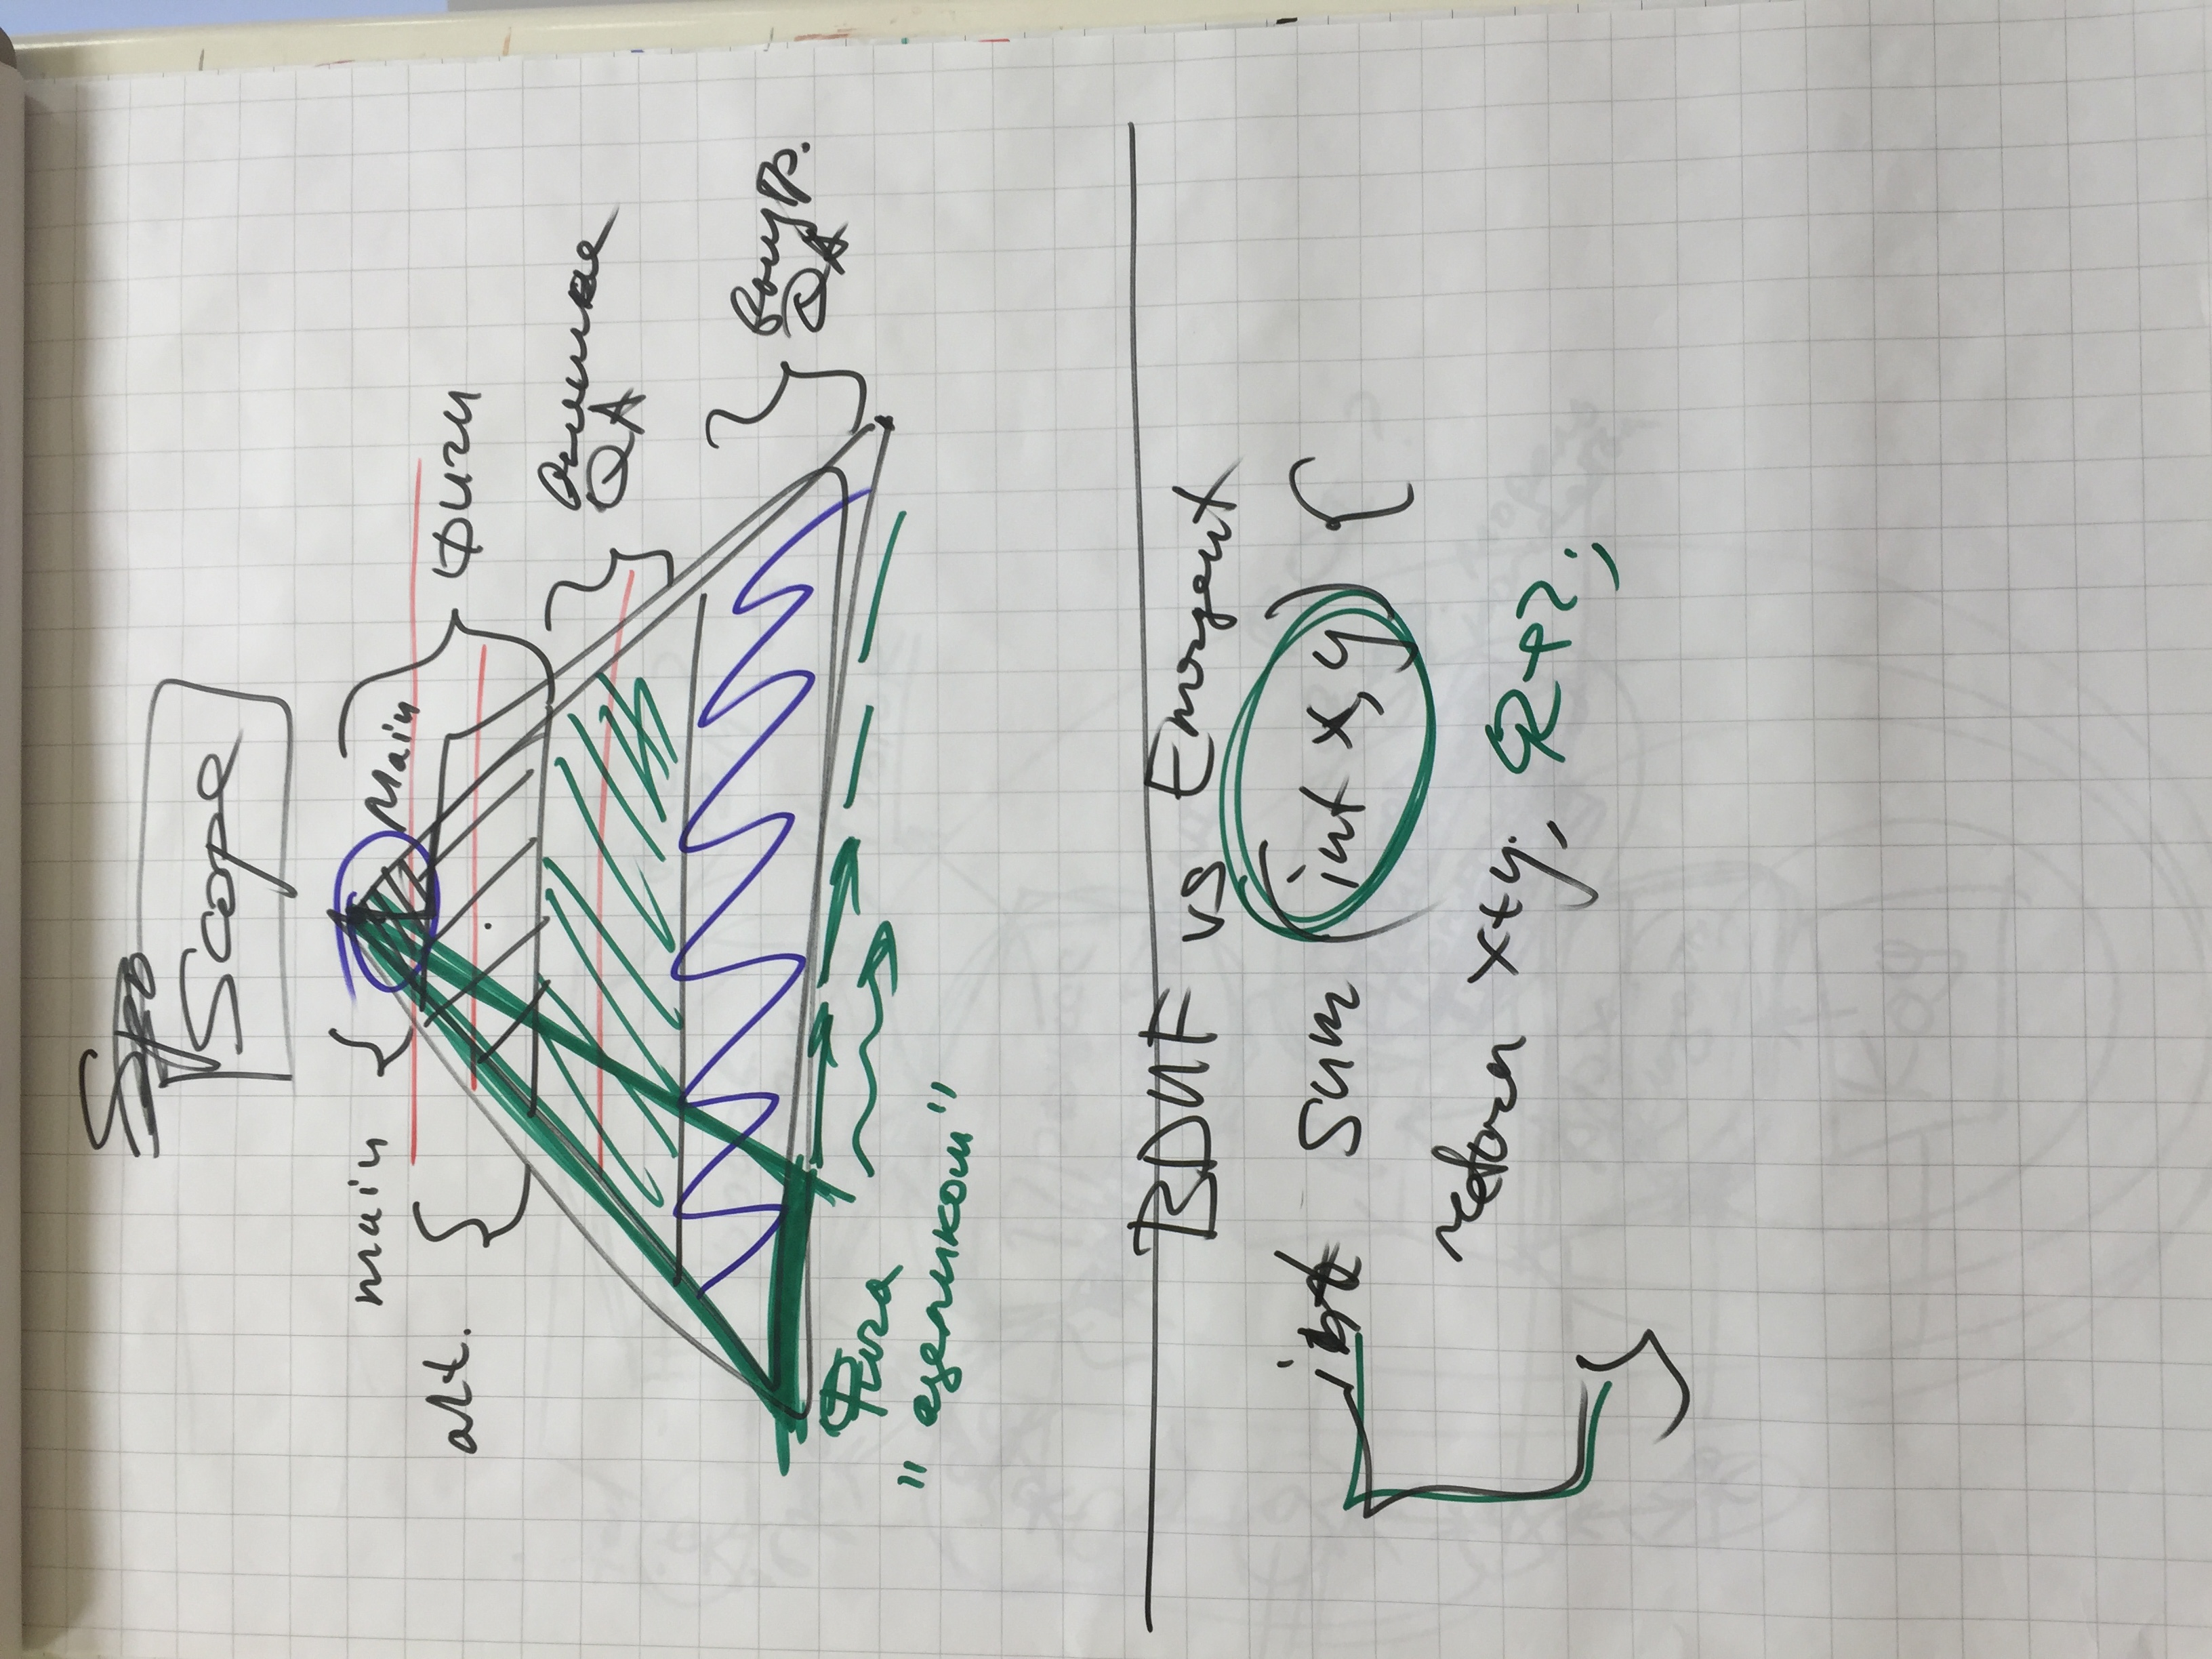 Scope
main
Main
alt.
Фичи
Внешнее
QA
Внутр.
QA
Фича
"целиком"
BDUF vs Emergent
int sum (int x, y) {
return x+y;
}